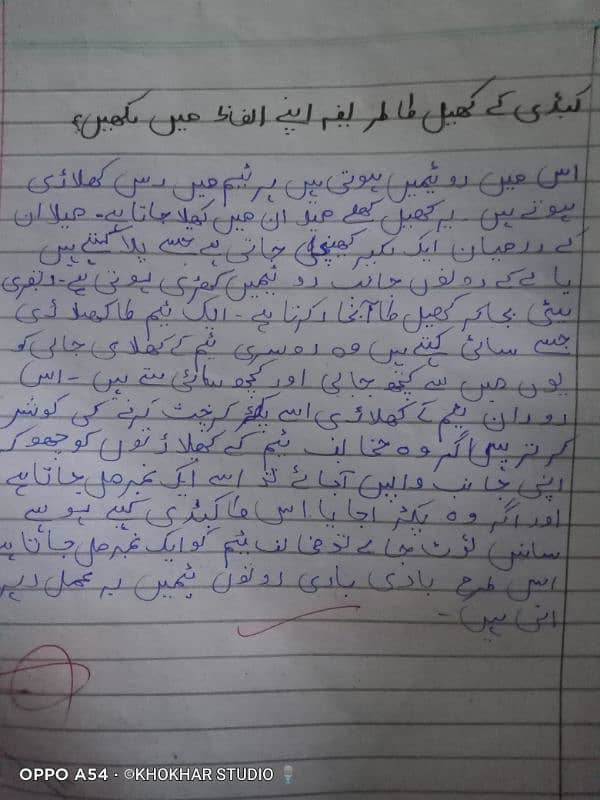 کبڈی کے کھیل کا طریقہ اپنے الفاظ میں لکھیں؟
اس میں دو ٹیمیں ہوتی ہیں ہر ٹیم میں دس کھلاڑی
ہوتے ہیں۔ یہ کھیل کھلے میدان میں کھیلا جاتا ہے۔ میدان
کے درمیان ایک لکیر کھینچی جاتی ہے جسے پالا کہتے ہیں
پالے کے دونوں جانب دو ٹیمیں کھڑی ہوتی ہے۔ ریفری
سیٹی بجا کر کھیل کا آغاز کرتا ہے۔ ایک ٹیم کا کھلاڑی
جسے سائی کہتے ہیں وہ دوسری ٹیم کے کھلاڑی جاپھی کو
یوں میں سے کچھ جاپھی اور کچھ سائی بنتے ہیں۔ اس
دوران ٹیم کے کھلاڑی اسے پکڑ کر چت کرنے کی کوشش
کرتے ہیں اگر وہ مخالف ٹیم کے کھلاڑیوں کو چھو کر
اپنی جانب واپس آجائے تو اسے ایک نمبر مل جاتا ہے
اور اگر وہ پکڑا جایا اس کا کبڈی کہتے ہوئے
سانس ٹوٹ جائے تو مخالف ٹیم کو ایک نمبر مل جاتا ہے
اسی طرح باری باری دونوں ٹیمیں یہ عمل دہر
اتی ہیں۔
OPPO A54 · ©KHOKHAR STUDIO